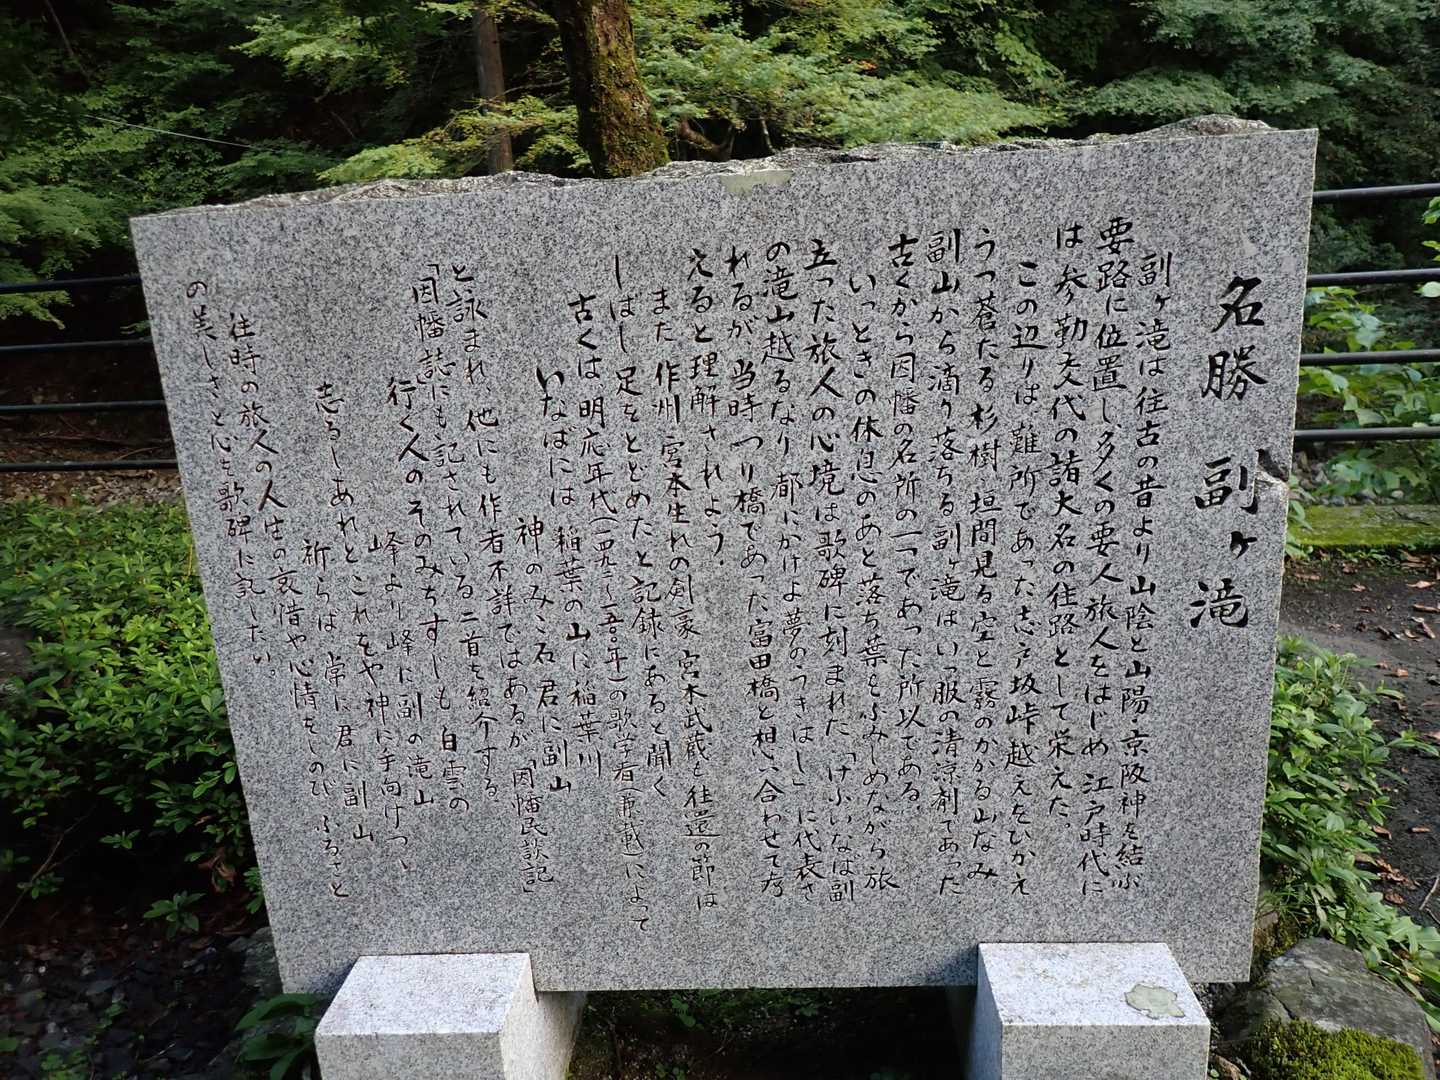 名勝 副ヶ滝
副ヶ滝は往古の昔より山陰と山陽・京阪神を結ぶ
要路に位置し、多くの要人、旅人をはじめ、江戸時代に
は参勤交代の諸大名の往路として栄えた。
この辺りは難所であった志戸坂峠越えをひかえ
うつ蒼たる杉樹、垣間見る空と霧のかかる山なみ
副山から滴り落ちる副ヶ滝はいっ服の清涼剤であった
古くから因幡の名所の一つであった所以である。
いっときの休息のあと落ち葉をふみしめながら旅
立った旅人の心境は歌碑に刻まれた「けふいなば副
の滝山越るなり都にかけよ夢のうきはし」に代表さ
れるが、当時つり橋であった富田橋と想い合わせて考
えると理解されよう。
また作州宮本生れの剣豪宮本武蔵も往還の節は
しばし足をとどめたと記録にあると聞く
古くは明応年代(一四九二~一五〇〇年)の歌学者(兼載)によって
いなばには稲葉の山に稲葉川
神のみこ石君に副山
と詠まれ、他にも作者不詳ではあるが「因幡民談記」
「因幡誌」にも記されている二首を紹介する
行く人のそのみちすじも白雲の
峰より峰に副の滝山
志るしあれとこれをや神に手向けつゝ
祈らば常に君に副山
往時の旅人の人生の哀惜や心情をしのび、ふるさと
の美しさと心を歌碑に記したい。